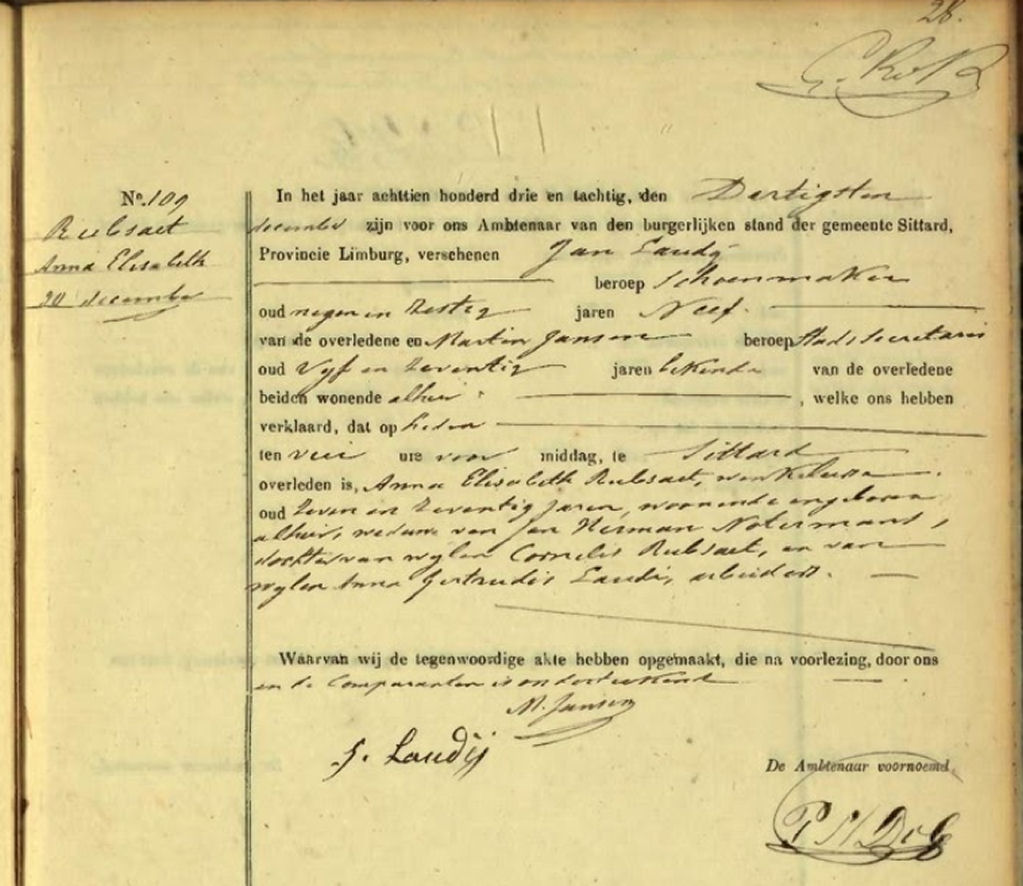 28.
No. 109
Rubsaet
Anna Elisabeth
30 december
In het jaar achttien honderd drie en tachtig, den Dertigsten
december zijn voor ons Ambtenaar van den burgerlijken stand der gemeente Sittard,
Provincie Limburg, verschenen Jan Laudij
beroep Schoenmaker
oud negen en zestig jaren Neef
van de overledene en Martin Jansen beroep Stadssecretaris
oud Vijf en zeventig jaren bekende van de overledene
beiden wonende alhier, welke ons hebben
verklaard, dat op heden
ten vier ure voor middag, te Sittard
overleden is, Anna Elisabeth Rubsaet, winkelierse
oud zeven en zeventig jaren, woonende en geboren
alhier, weduwe van Jan Herman Notermans,
dochter van wylen Cornelis Rubsaet, en van
wylen Anna Gertrudis Laudij, arbeiders.
Waarvan wij de tegenwoordige akte hebben opgemaakt, die na voorlezing, door ons
en de Comparanten is onderteekend
M. Jansen
J. Laudij
De Ambtenaar voornoemd,